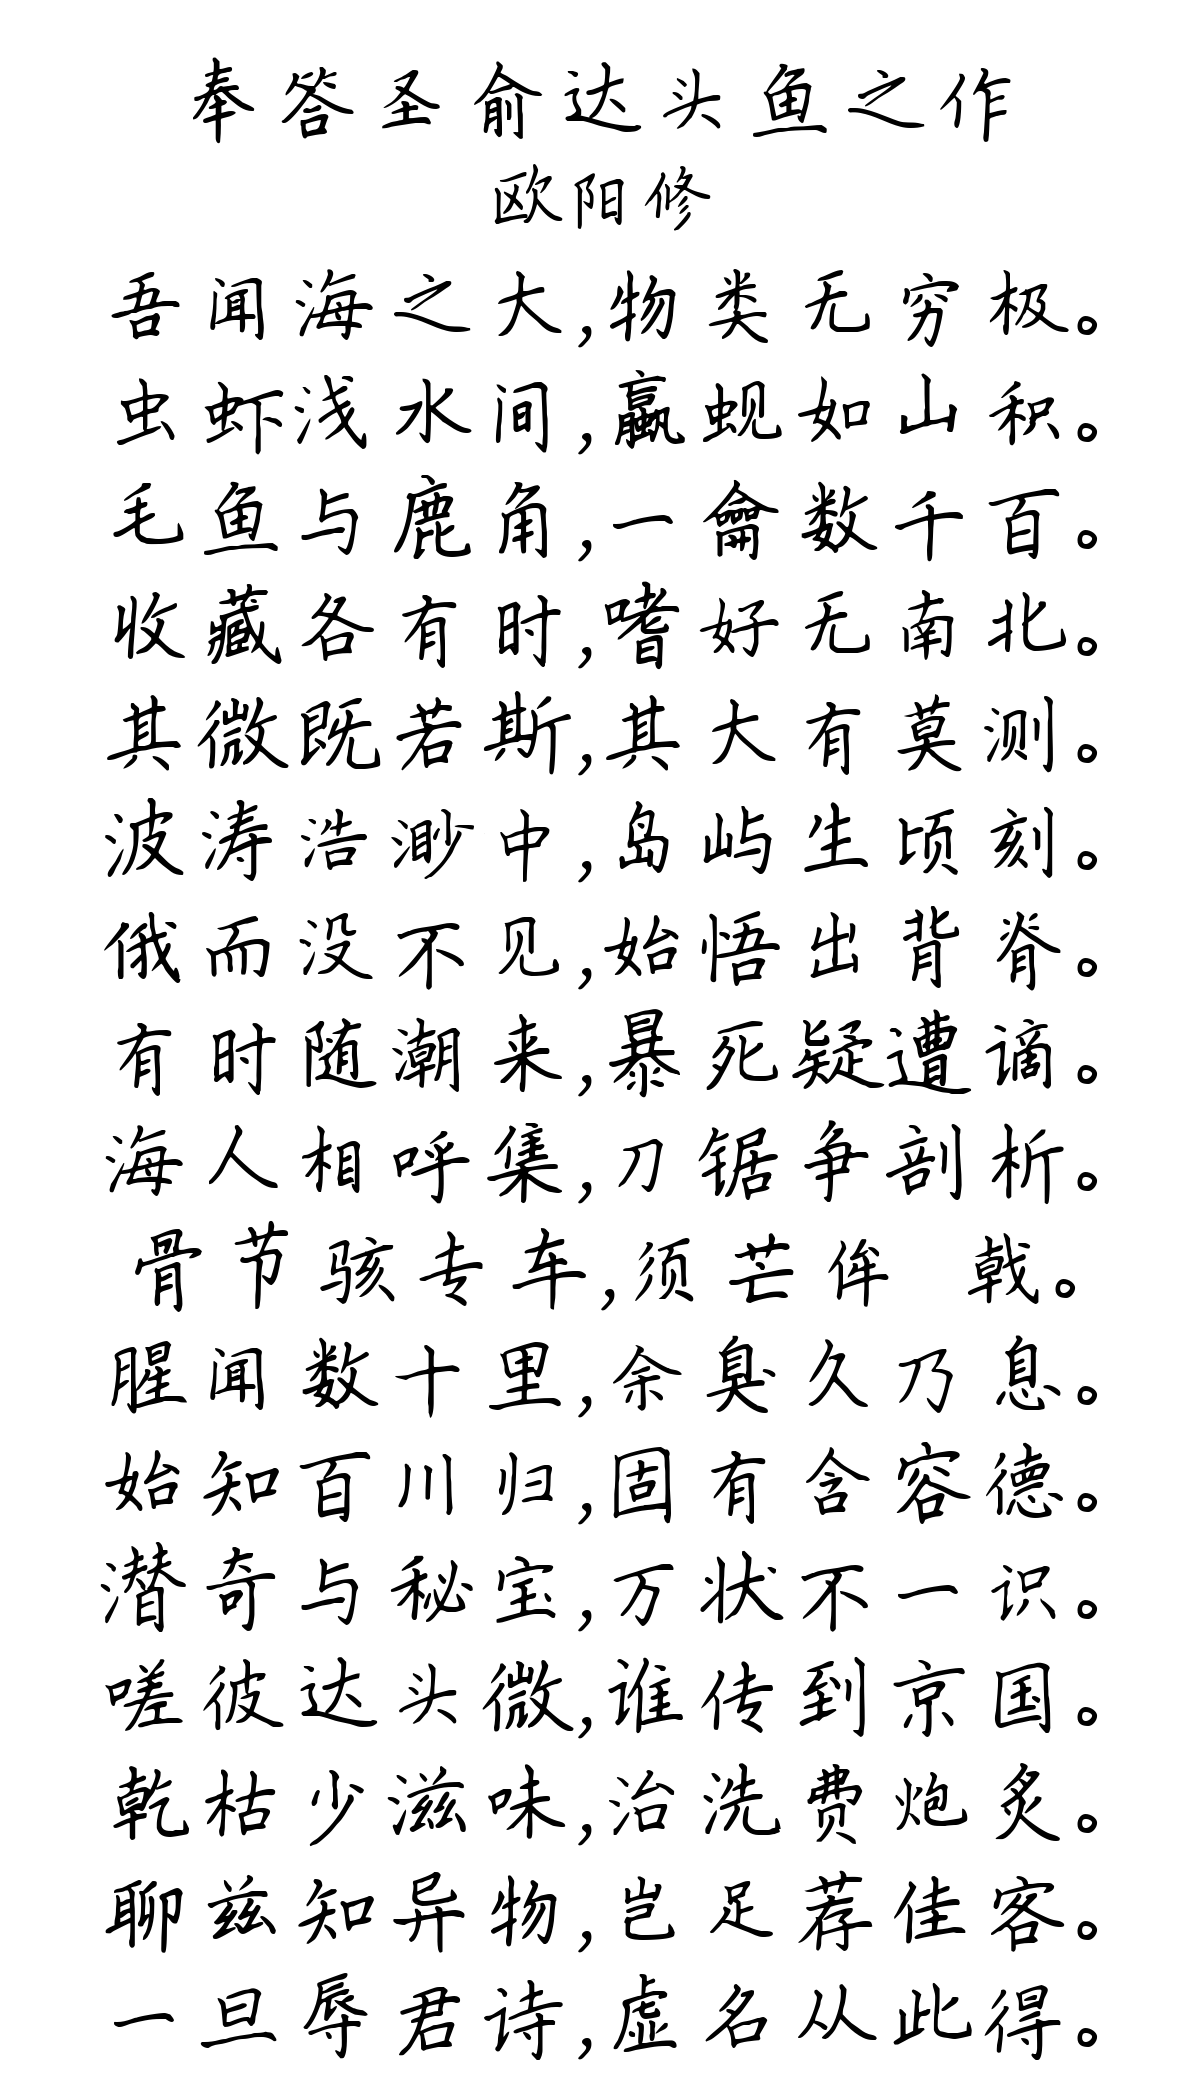 奉答圣俞达头鱼之作
欧阳修
吾闻海之大,物类无穷极。
虫虾浅水间,蠃蚬如山积。
毛鱼与鹿角,一龠数千百。
收藏各有时,嗜好无南北。
其微既若斯,其大有莫测。
波涛浩渺中,岛屿生顷刻。
俄而没不见,始悟出背脊。
有时随潮来,暴死疑遭谪。
海人相呼集,刀锯争剖析。
骨节骇专车,须芒侔 戟。
腥闻数十里,余臭久乃息。
始知百川归,固有含容德。
潜奇与秘宝,万状不一识。
嗟彼达头微,谁传到京国。
乾枯少滋味,治洗费炮炙。
聊兹知异物,岂足荐佳客。
一旦辱君诗,虚名从此得。